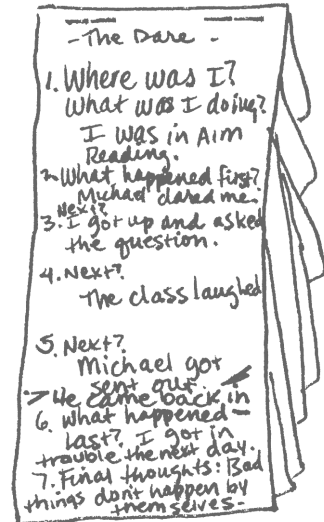 - The Dare -
1. Where was I?
What was I doing?
I was in Aim
Reading.
2. What happened first?
Michael dared me.
Next?
3. I got up and asked
the question.
4. Next?
The class laughed
5. Next?
Michael got
sent out.
→ He came back in
6. What happened
last? I got in
trouble the next day.
7. Final thoughts: Bad
things don't happen by
themselves.